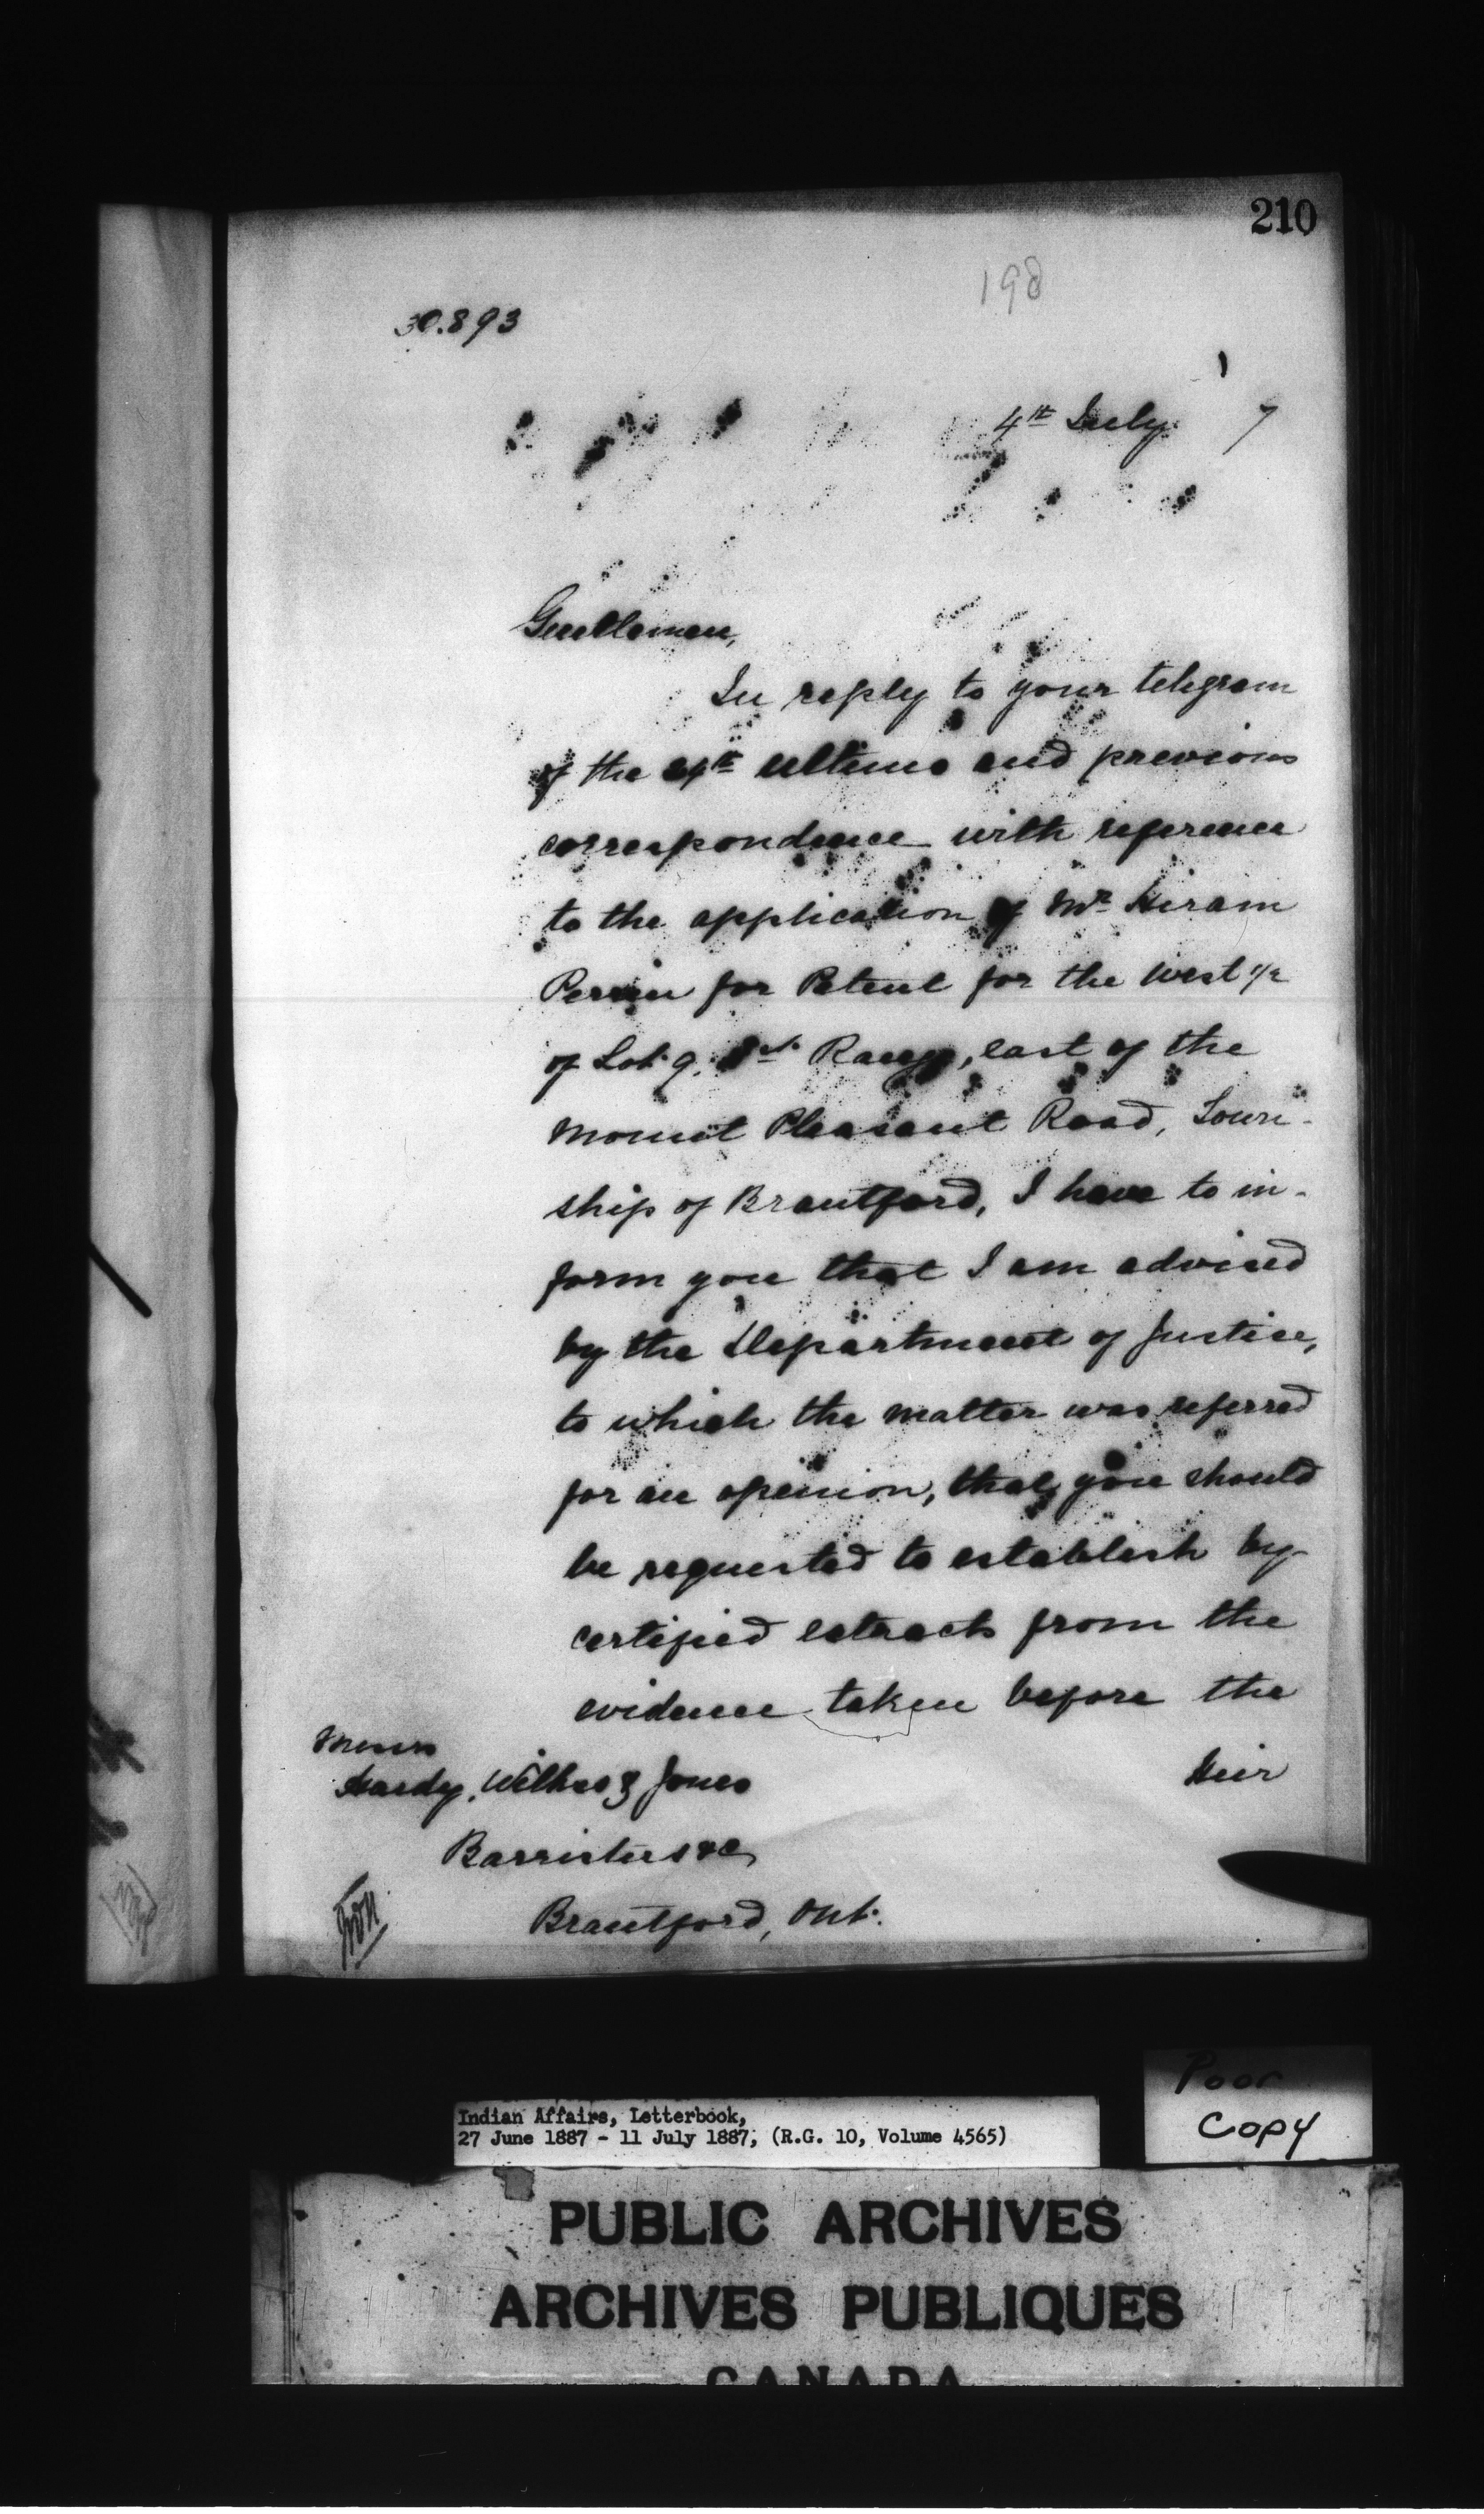 210
198
30.893
4th July 7
Gentlemen,
In reply to your telegram
of the ultimo and previous
correspondence with reference
to the application of Mr Hiram
Perrin for Patent for the West 1/2
of Lot 9, 1st Range, east of the
Mount Pleasant Road, Town-
ship of Brantford, I have to in-
form you that I am advised
by the Department of Justice,
to which the matter was referred
for an opinion, that you should
be requested to establish by
certified extracts from the
evidence taken before the
Heir
Messrs
Hardy, Wilkes & Jones
Barristers &c
Brantford, Ont.
Poor
Copy
Indian Affairs, Letterbook,
27 June 1887 - 11 July 1887, (R.G. 10, Volume 4565)
PUBLIC ARCHIVES
ARCHIVES PUBLIQUES
CANADA